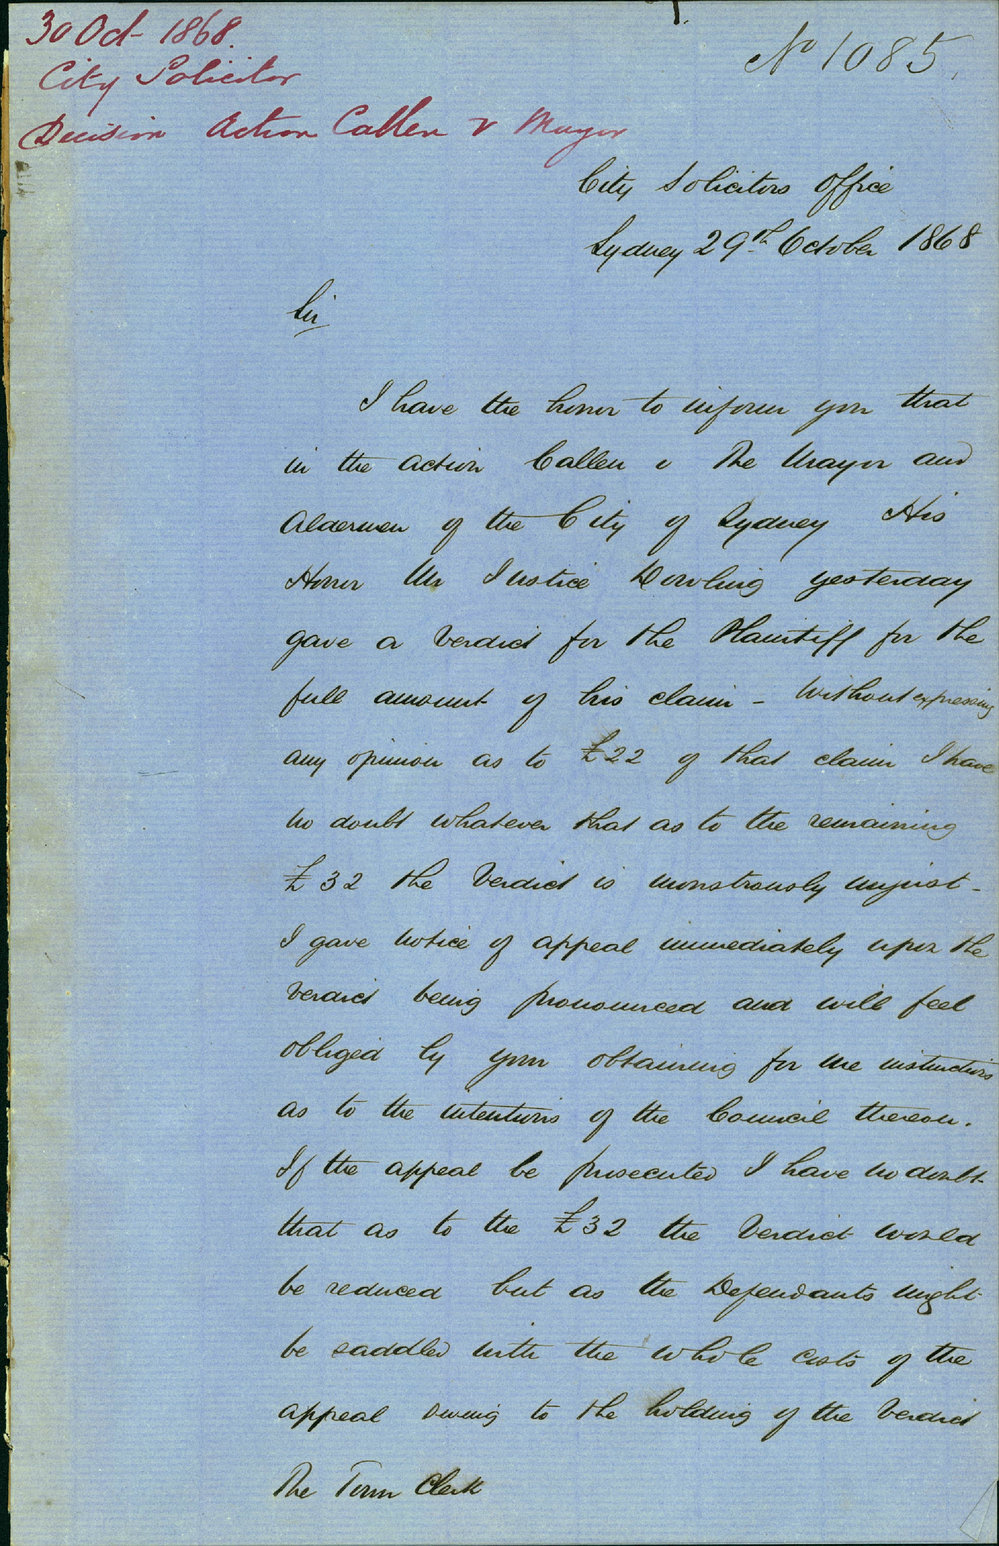 30 Oct 1868.
No 1085.
City Solicitor
Decision Action Callen v Mayor
City Solicitors Office
Sydney 29th October 1868
Sir
I have the honor to inform you that
in the action Callen v The Mayor and
Aldermen of the City of Sydney His
Honor Mr Justice Dowling yesterday
gave a Verdict for the Plaintiff for the
full amount of his claim - Without expressing
any opinion as to £22 of that claim I have
no doubt whatever that as to the remaining
£32 the Verdict is monstrously unjust -
I gave notice of appeal immediately upon the
Verdict being pronounced and will feel
obliged by your obtaining for me instructions
as to the intentions of the Council thereon.
If the appeal be prosecuted I have no doubt
that as to the £32 the Verdict would
be reduced but as the Defendants might
be saddled with the whole costs of the
appeal owing to the holding of the Verdict
The Town Clerk